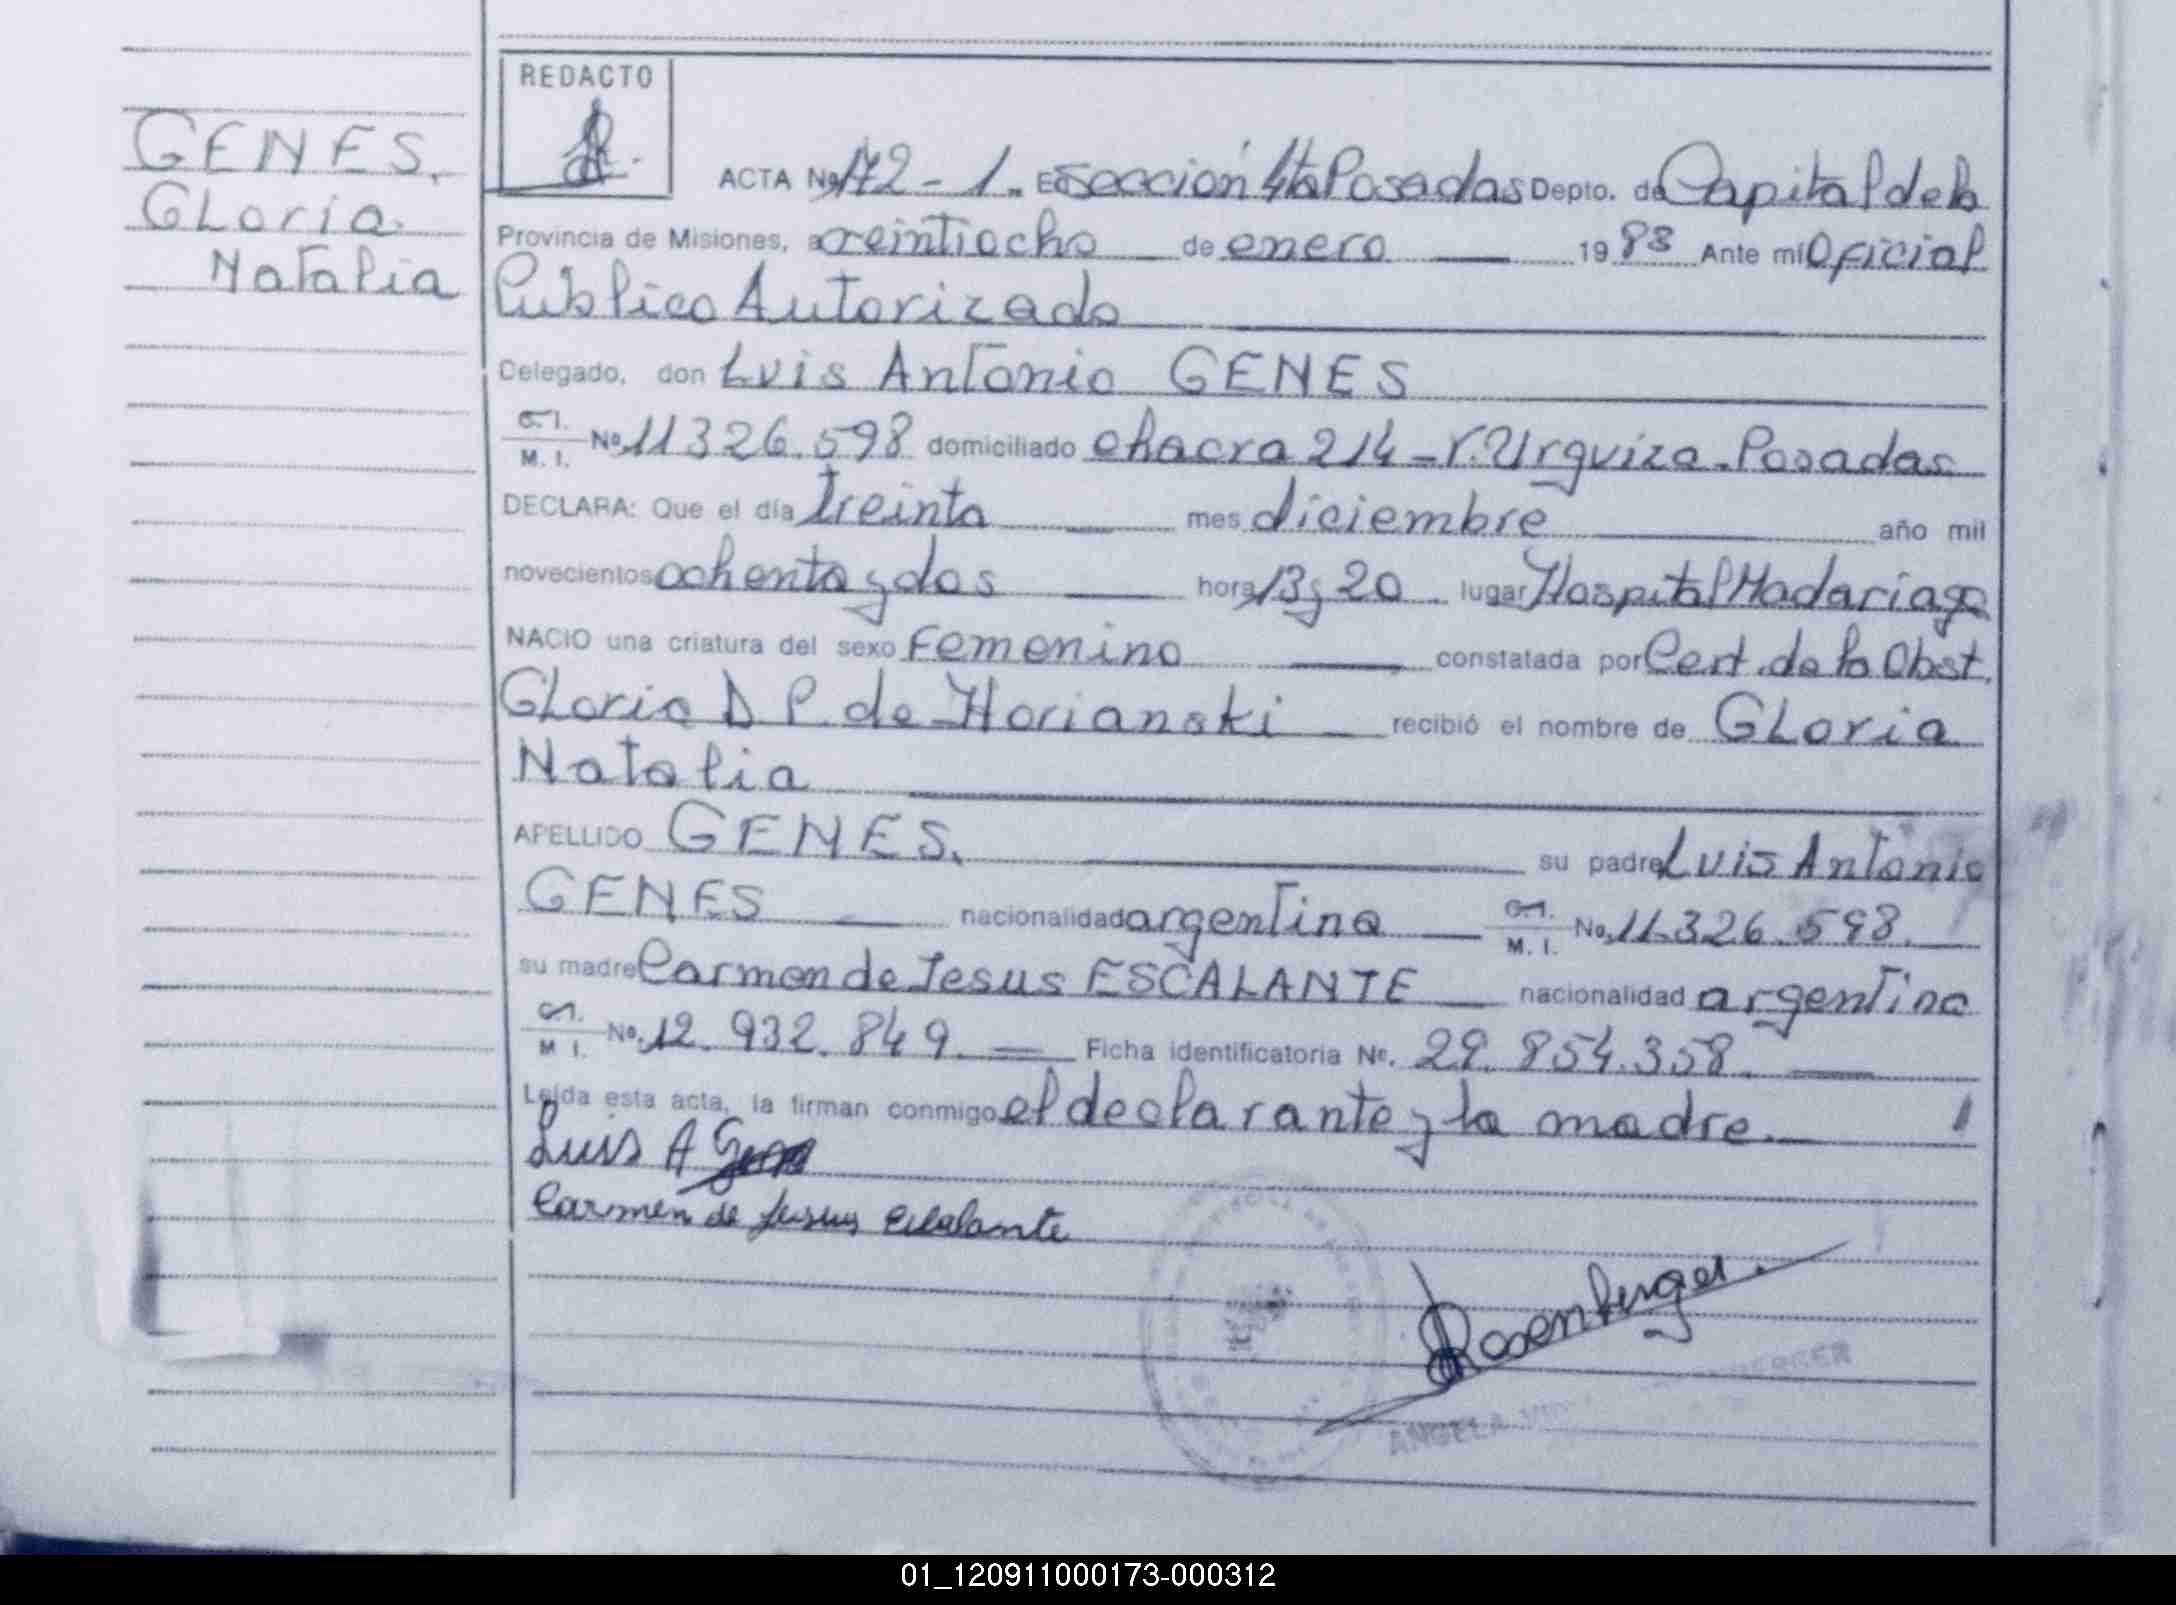 REDACTO
GENES.
Gloria
Natalia
ACTA No 172-1. En Sección 4ta Posadas Depto. de Capital de la
Provincia de Misiones, a veintiocho de enero 1983 Ante mi Oficial
Publico Autorizado
Delegado, don Luis Antonio GENES
M. I. No 11326.598 domiciliado chacra 214 - V. Urquiza - Posadas
DECLARA: Que el día treinta mes diciembre año mil
novecientos ochenta y dos hora 13 y 20 lugar Hospital Madariaga
NACIO una criatura del sexo Femenino constatada por Cert. de la Obst.
Gloria D P. de recibió el nombre de Gloria
Natalia
APELLIDO GENES. su padre Luis Antonio
GENES nacionalidad argentina M. I. No 11.326.598.
su madre Carmen de Jesus ESCALANTE nacionalidad argentina
M. I. No. 12.932.849. Ficha identificatoria No. 29.854.358.
Leída esta acta, la firman conmigo el declarante y la madre.
Luis A Genes
Carmen de Jesus Escalante
Rosenberger
ANGELA
01_120911000173-000312